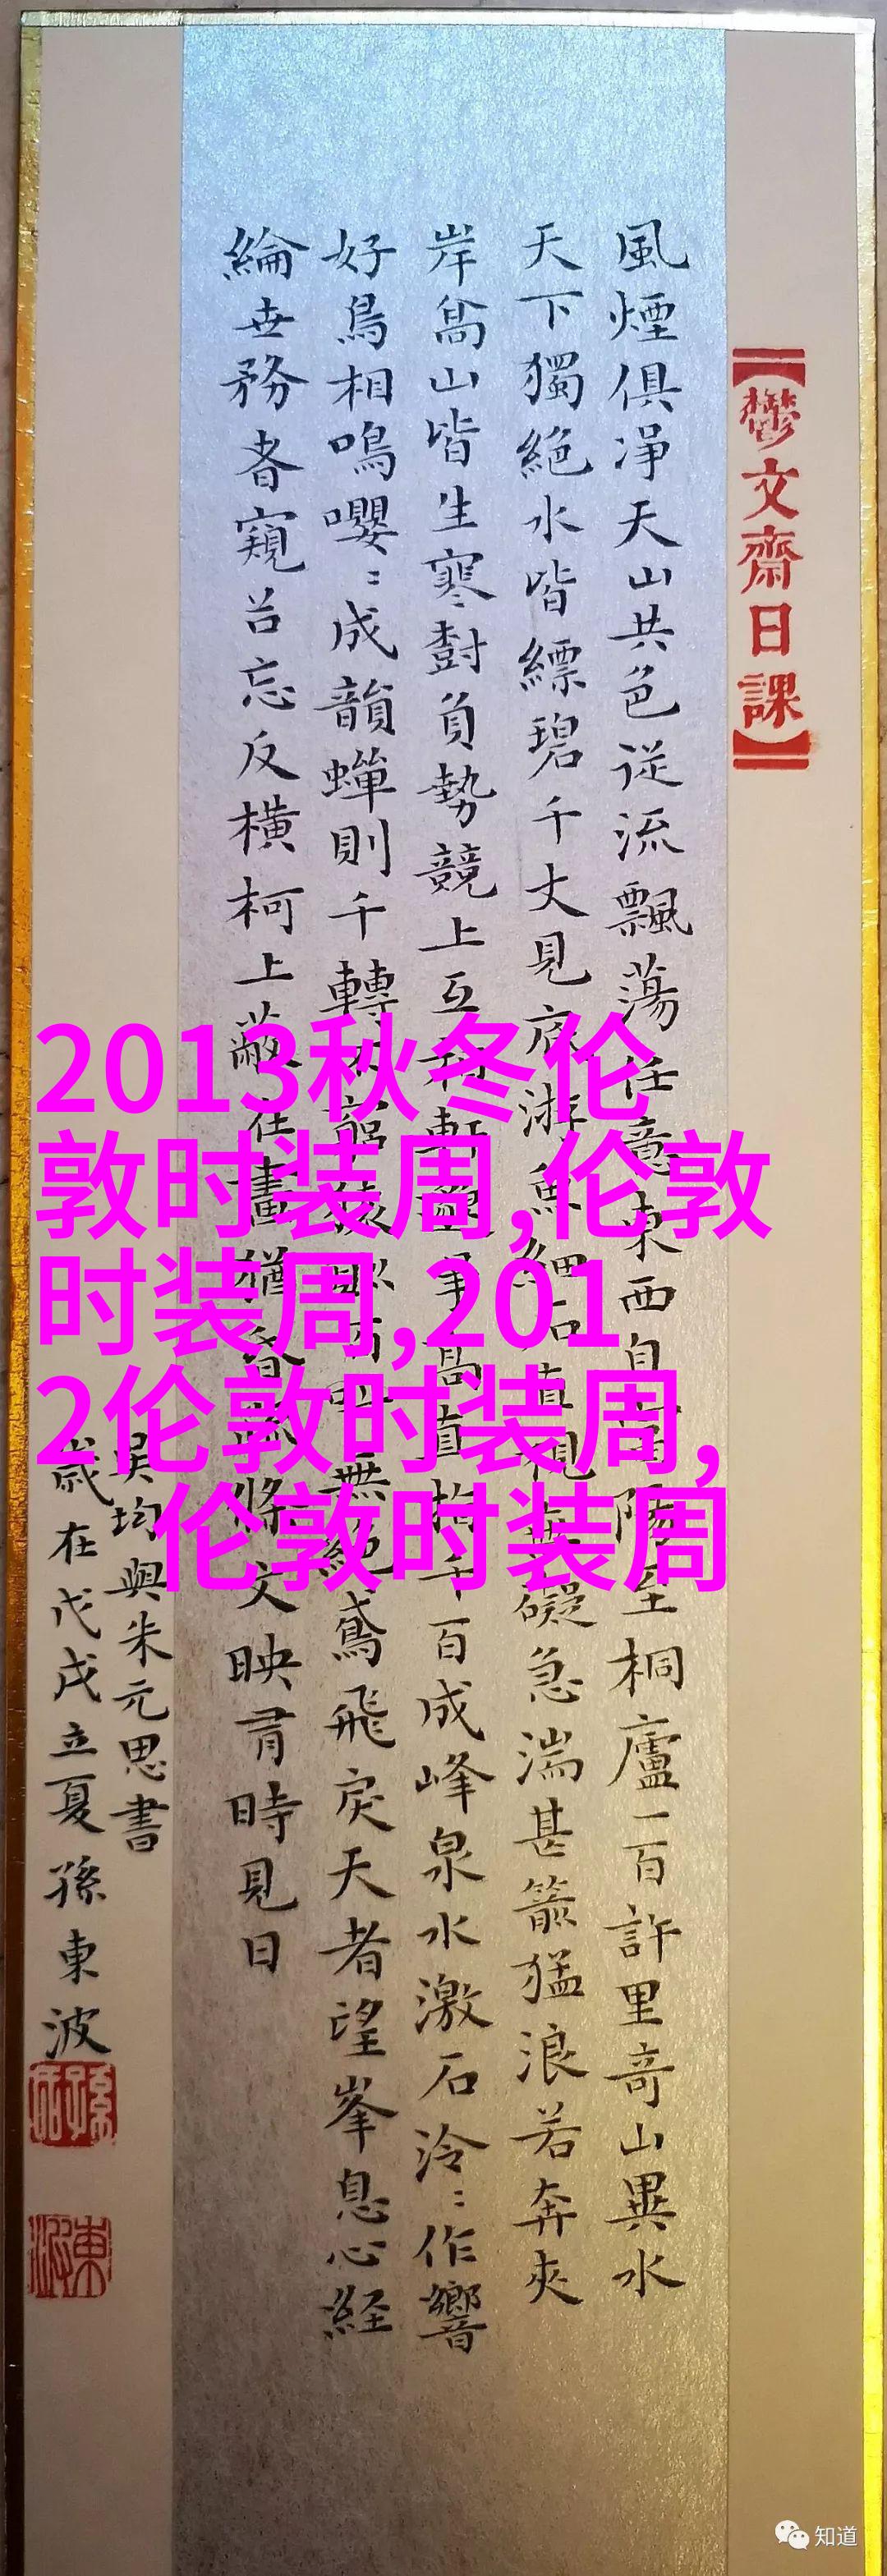 【鬱文齋日課】
風煙俱凈天山共色從流飄蕩任意東西自陽至桐廬一百許里奇山異水
天下獨絕水皆縹碧千丈見底游魚細石直視無礙急湍甚箭猛浪若奔夾
岸高山皆生寒樹負勢競上互相軒邈爭高直指千百成峰泉水激石泠〻作響
好鳥相鳴嚶〻成韻蟬則千轉不窮猿則百叫無絕鳶飛戾天者望峯息心経
綸世務者窺谷忘反橫柯上蔽在晝猶昏疏條交映有時見日
吳均與朱元思書
歲在戊戌立夏孫東波
2013秋冬伦
敦时装周,伦敦
时装周,201
2伦敦时装周,
伦敦时装周
知道